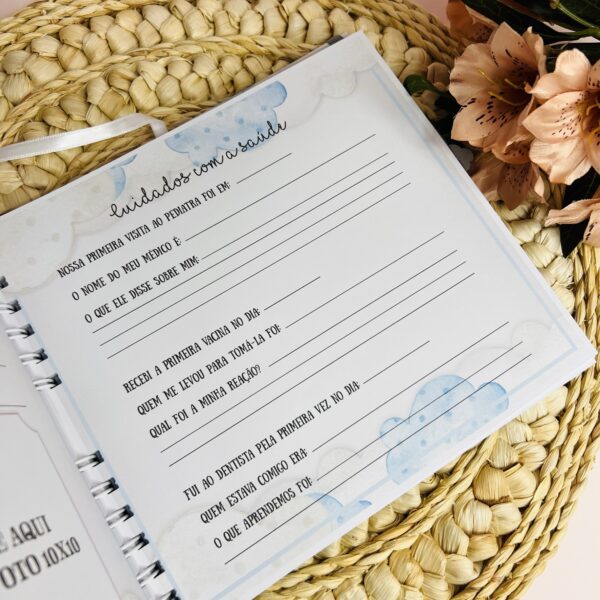 Cuidados com a saúde
NOSSA PRIMEIRA VISITA AO PEDIATRA FOI EM:
O NOME DO MEU MÉDICO É:
O QUE ELE DISSE SOBRE MIM:
RECEBI A PRIMEIRA VACINA NO DIA:
QUEM ME LEVOU PARA TOMÁ-LA FOI:
QUAL FOI A MINHA REAÇÃO?
FUI AO DENTISTA PELA PRIMEIRA VEZ NO DIA:
QUEM ESTAVA COMIGO ERA:
O QUE APRENDEMOS FOI:
AQUI
OTO 10X10